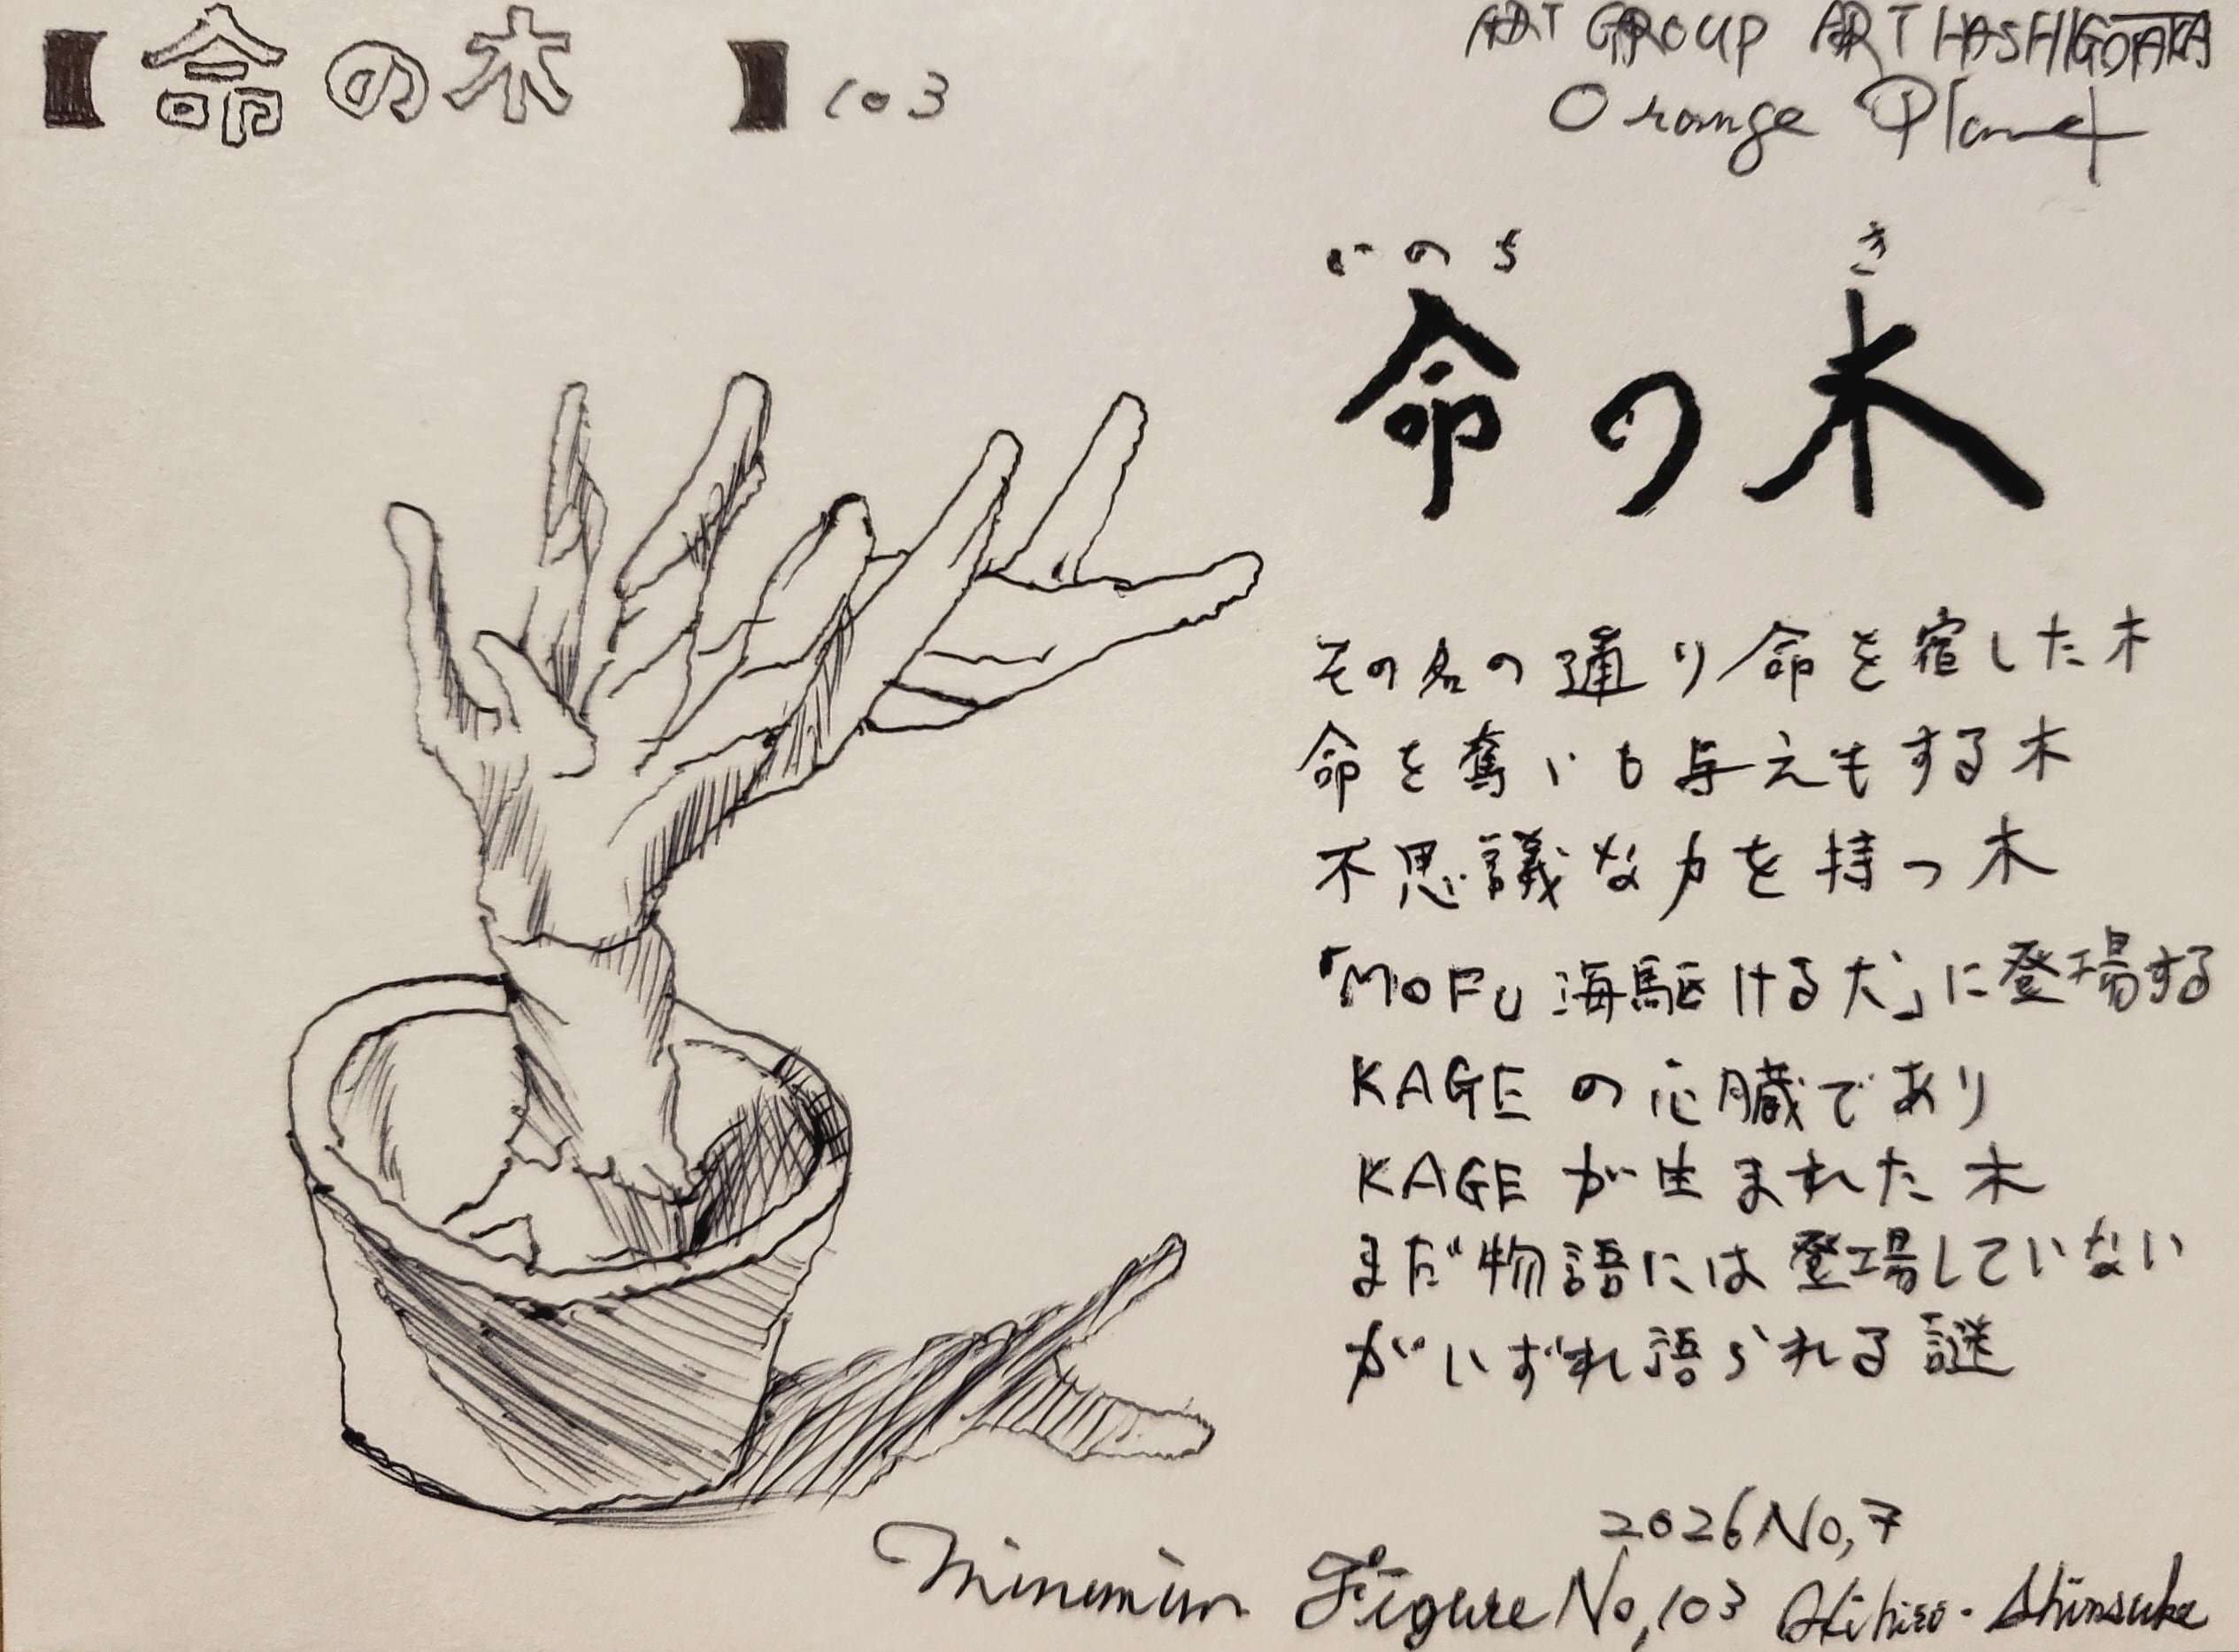 【命の木 】103
ART GROUP ART HASHIGOTAKA
Orange Planet
いのち き
命の木
その名の通り命を宿した木
命を奪いも与えもする木
不思議な力を持つ木
「MOFU 海駆ける犬」に登場する
KAGEの心臓であり
KAGEが生まれた木
まだ物語には登場していない
がいずれ語られる謎
2026 No,7
Minimum Figure No,103 Akihiro・Shinsuke